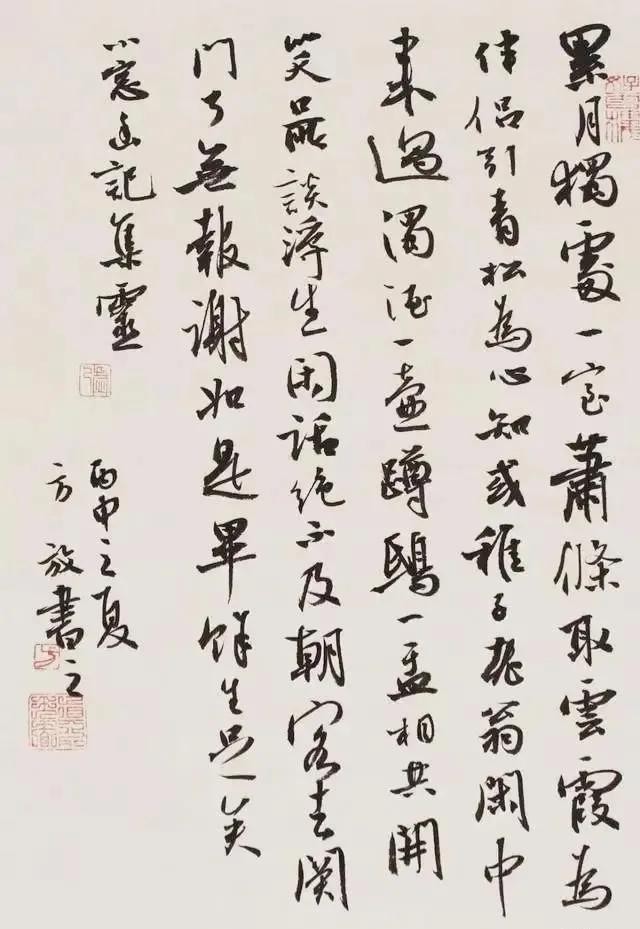 累月獨處一室蕭條取雲霞為
伴侶引青松為心知或稚子老翁閑中
来過濁酒一壺蹲鴟一盂相共開
笑品談浮生閑話絶不及朝客去関
門了無報謝如是畢餘生足矣
小窓幽記集靈
丙申之夏
方放書之